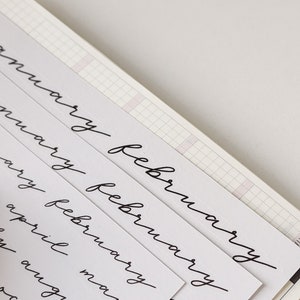 january february
january february
january february
april ma
augu